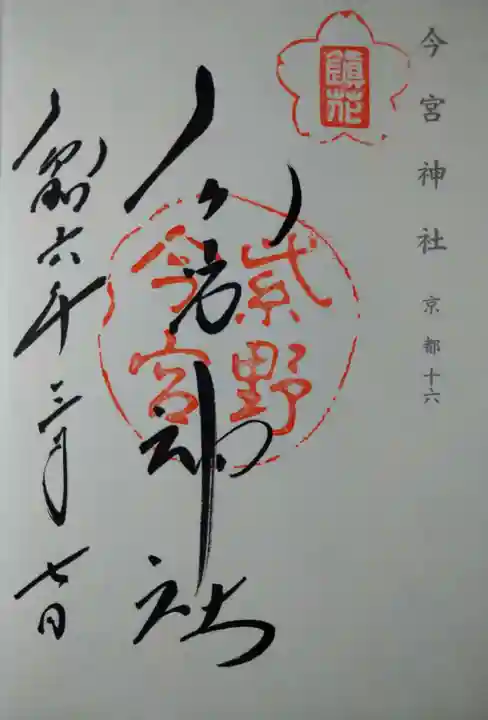 今宮神社 京都十六
鎮花
今宮神社
紫野
今宮
令和六年三月七日